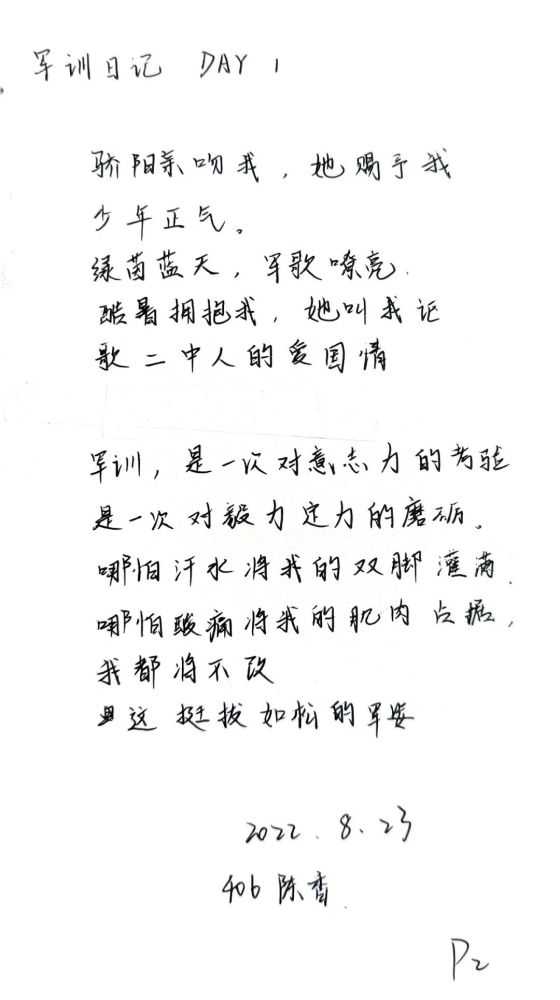 军训日记 DAY 1
骄阳亲吻我，她赐予我
少年正气。
绿茵蓝天，军歌嘹亮.
酷暑拥抱我，她叫我讴
歌二中人的爱国情
军训，是一次对意志力的考验
是一次对毅力定力的磨砺。
哪怕汗水将我的双脚灌满.
哪怕酸痛将我的肌肉占据，
我都将不改
这挺拔如松的军姿
2022.8.23
406 陈香.
P2